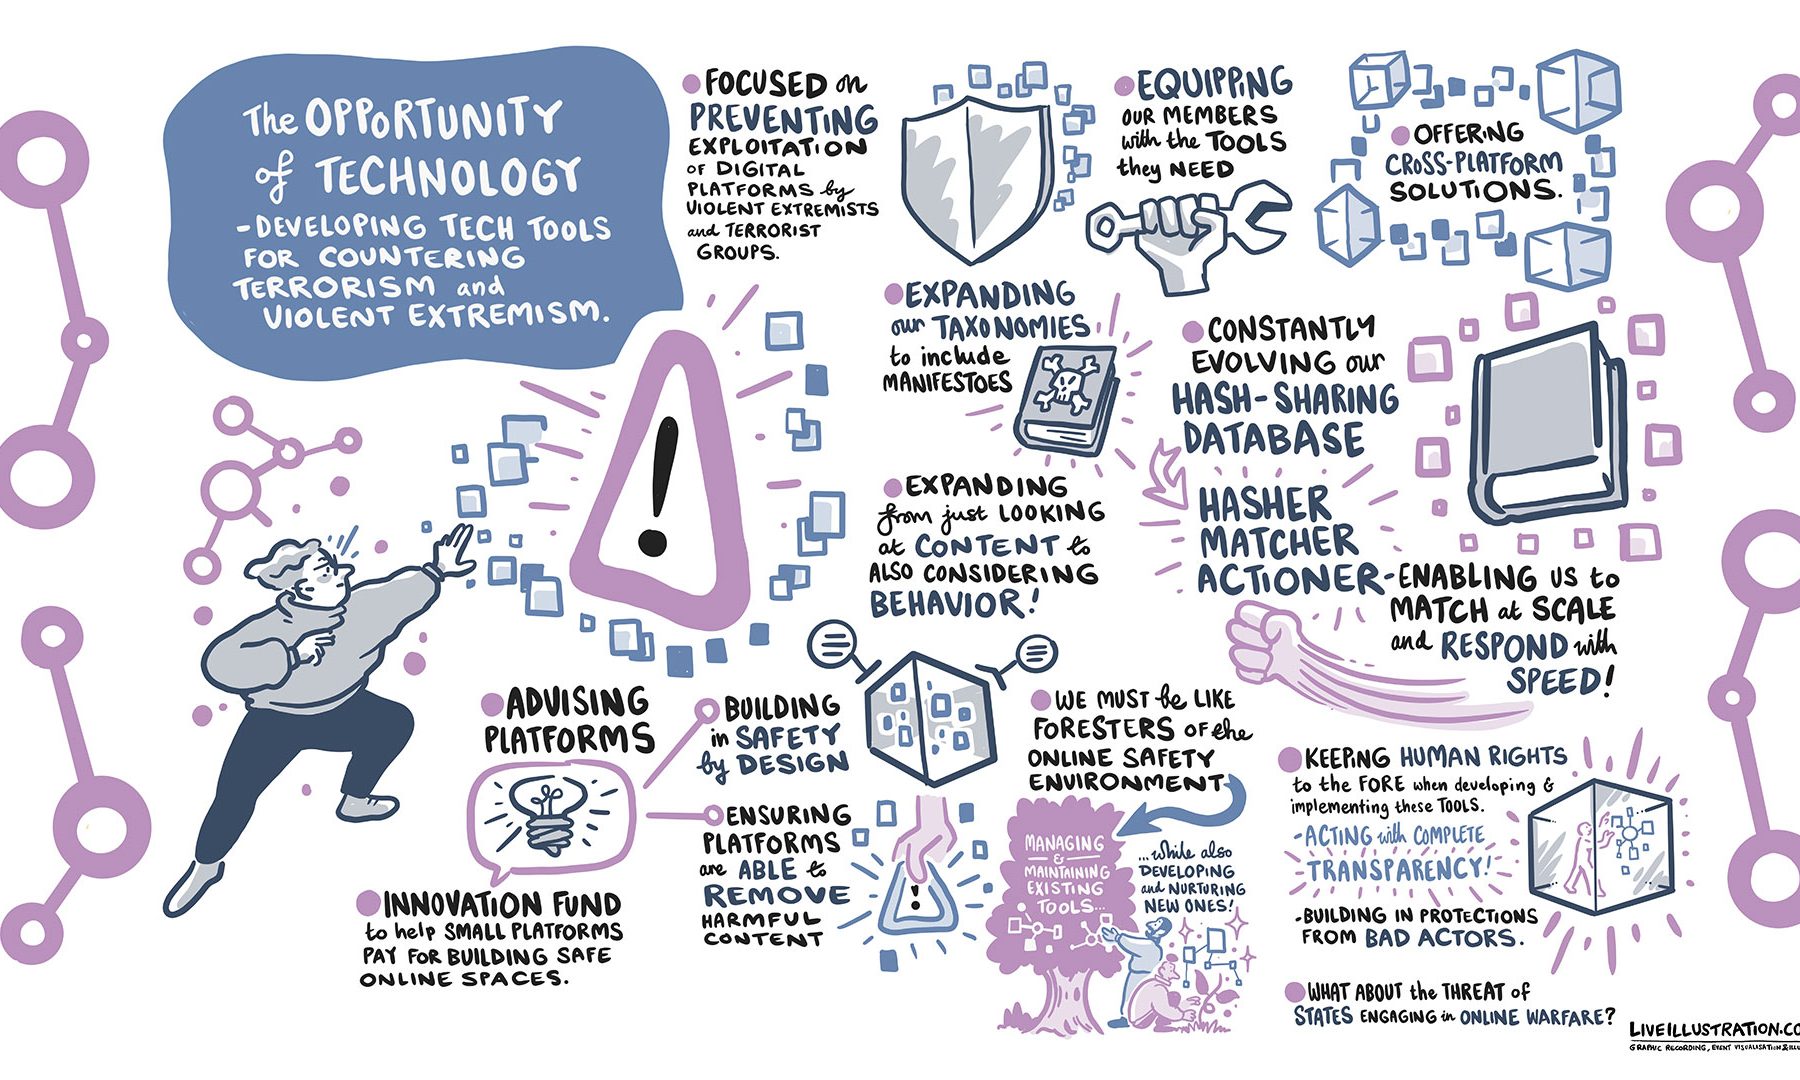 The OPPORTUNITY
of TECHNOLOGY
-DEVELOPING TECH TOOLS
FOR COUNTERING
TERRORISM and
VIOLENT EXTREMISM.
FOCUSED on
PREVENTING
EXPLOITATION
OF DIGITAL
PLATFORMS by
VIOLENT EXTREMISTS
and TERRORIST
GROUPS.
EQUIPPING
OUR MEMBERS
with the TOOLS
they NEED
OFFERING
CROSS-PLATFORM
SOLUTIONS.
EXPANDING
our TAXONOMIES
to include
MANIFESTOES
CONSTANTLY
EVOLVING our
HASH-SHARING
DATABASE
HASHER
MATCHER
ACTIONER-ENABLING US to
MATCH at SCALE
and RESPOND with
SPEED!
EXPANDING
from just LOOKING
at CONTENT to
ALSO CONSIDERING
BEHAVIOR!
!
ADVISING
PLATFORMS
BUILDING
in SAFETY
by DESIGN
ENSURING
PLATFORMS
are ABLE to
REMOVE
HARMFUL
CONTENT
!
INNOVATION FUND
to help SMALL PLATFORMS
PAY FOR BUILDING SAFE
ONLINE SPACES.
WE MUST be LIKE
FORESTERS OF the
ONLINE SAFETY
ENVIRONMENT
MANAGING
&
MAINTAINING
EXISTING
TOOLS...
...while also
DEVELOPING
and NURTURING
NEW ONES!
KEEPING HUMAN RIGHTS
to the FORE when developing &
implementing these TOOLS.
-ACTING with COMPLETE
TRANSPARENCY!
-BUILDING IN PROTECTIONS
FROM BAD ACTORS.
WHAT ABOUT the THREAT of
STATES ENGAGING in ONLINE WARFARE?
LIVEILLUSTRATION.CO
GRAPHIC RECORDING, EVENT VISUALISATION & ILLU